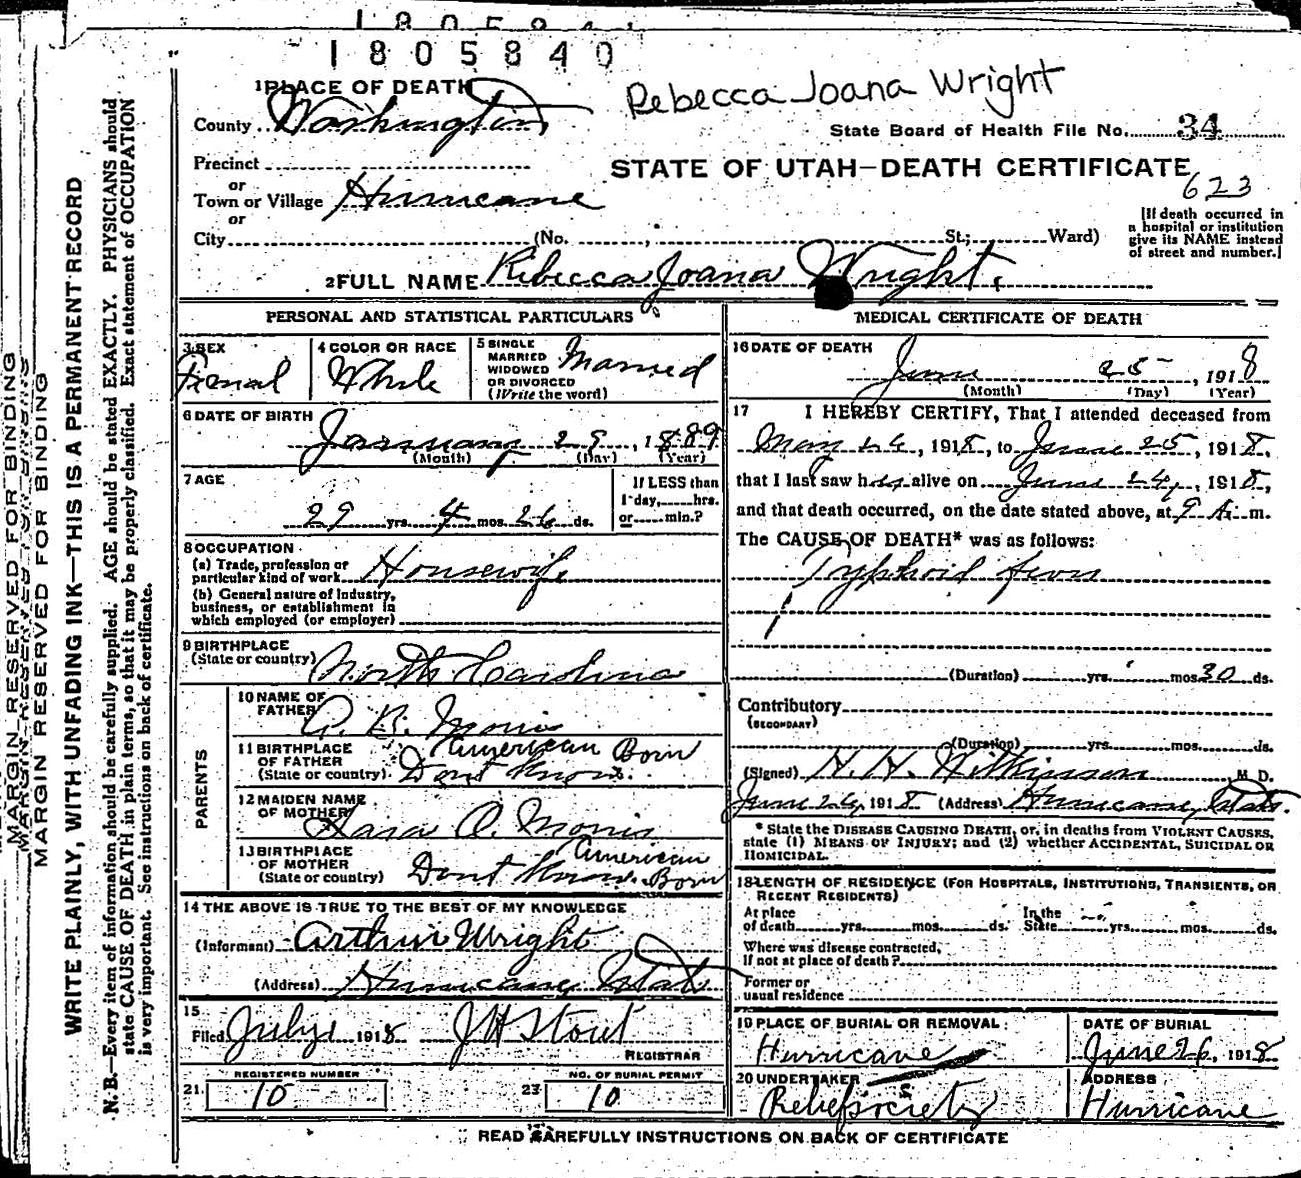 1805840
Rebecca Joana Wright
1 PLACE OF DEATH
County Washington
State Board of Health File No. 34
Precinct
STATE OF UTAH—DEATH CERTIFICATE
623
or
Town or Village Hurricane
or
City (No. , St.; Ward)
[If death occurred in
a hospital or institution
give its NAME instead
of street and number.]
2 FULL NAME Rebecca Joana Wright.
PERSONAL AND STATISTICAL PARTICULARS
3 SEX
Femal
4 COLOR OR RACE
White
5 SINGLE
MARRIED
WIDOWED
OR DIVORCED
(Write the word)
Married
6 DATE OF BIRTH
January 29, 1889
(Month) (Day) (Year)
7 AGE
29 yrs. 4 mos. 26 ds.
If LESS than
1 day, hrs.
or min.?
8 OCCUPATION
(a) Trade, profession or
particular kind of work Housewife
(b) General nature of Industry,
business, or establishment in
which employed (or employer)
9 BIRTHPLACE
(State or country) North Carolina
PARENTS
10 NAME OF
FATHER
A. B. Morris
11 BIRTHPLACE
OF FATHER
(State or country)
American Born
Dont Know.
12 MAIDEN NAME
OF MOTHER
Sara A. Morris
13 BIRTHPLACE
OF MOTHER
(State or country)
American
Dont Know. Born
14 THE ABOVE IS TRUE TO THE BEST OF MY KNOWLEDGE
(Informant) Arthur Wright
(Address) Hurricane Utah
15
Filed July 1 1918 J H Stout
REGISTRAR
REGISTERED NUMBER
21 10
NO. OF BURIAL PERMIT
23 10
MEDICAL CERTIFICATE OF DEATH
16 DATE OF DEATH
June 25, 1918
(Month) (Day) (Year)
17 I HEREBY CERTIFY, That I attended deceased from
May 26, 1918, to June 25, 1918,
that I last saw her alive on June 24, 1918,
and that death occurred, on the date stated above, at 9 A. m.
The CAUSE OF DEATH* was as follows:
Typhoid Fever
(Duration) yrs. mos. 30 ds.
Contributory
(SECONDARY)
(Duration) yrs. mos. ds.
(Signed) H. H. Wilkinson, M. D.
June 26, 1918 (Address) Hurricane, Utah.
* State the DISEASE CAUSING DEATH, or, in deaths from VIOLENT CAUSES,
state (1) MEANS OF INJURY; and (2) whether ACCIDENTAL, SUICIDAL OR
HOMICIDAL.
18 LENGTH OF RESIDENCE (FOR HOSPITALS, INSTITUTIONS, TRANSIENTS, OR
RECENT RESIDENTS)
At place
of death yrs. mos. ds.
In the
State yrs. mos. ds.
Where was disease contracted,
If not at place of death?
Former or
usual residence
19 PLACE OF BURIAL OR REMOVAL
Hurricane
DATE OF BURIAL
June 26, 1918
20 UNDERTAKER
Relief society
ADDRESS
Hurricane
READ CAREFULLY INSTRUCTIONS ON BACK OF CERTIFICATE
MARGIN RESERVED FOR BINDING
MARGIN RESERVED FOR BINDING
WRITE PLAINLY, WITH UNFADING INK—THIS IS A PERMANENT RECORD
N. B.—Every item of information should be carefully supplied. AGE should be stated EXACTLY. PHYSICIANS should
state CAUSE OF DEATH in plain terms, so that it may be properly classified. Exact statement of OCCUPATION
is very important. See instructions on back of certificate.